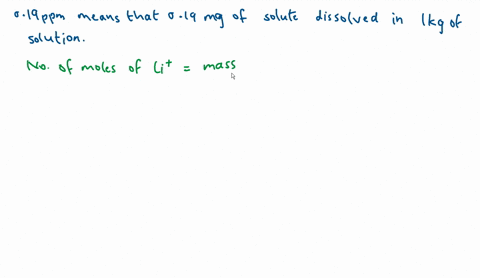 0.19 ppm means that 0.19 mg of solute dissolved in 1kg of
solution.
No. of moles of Li⁺ = mass